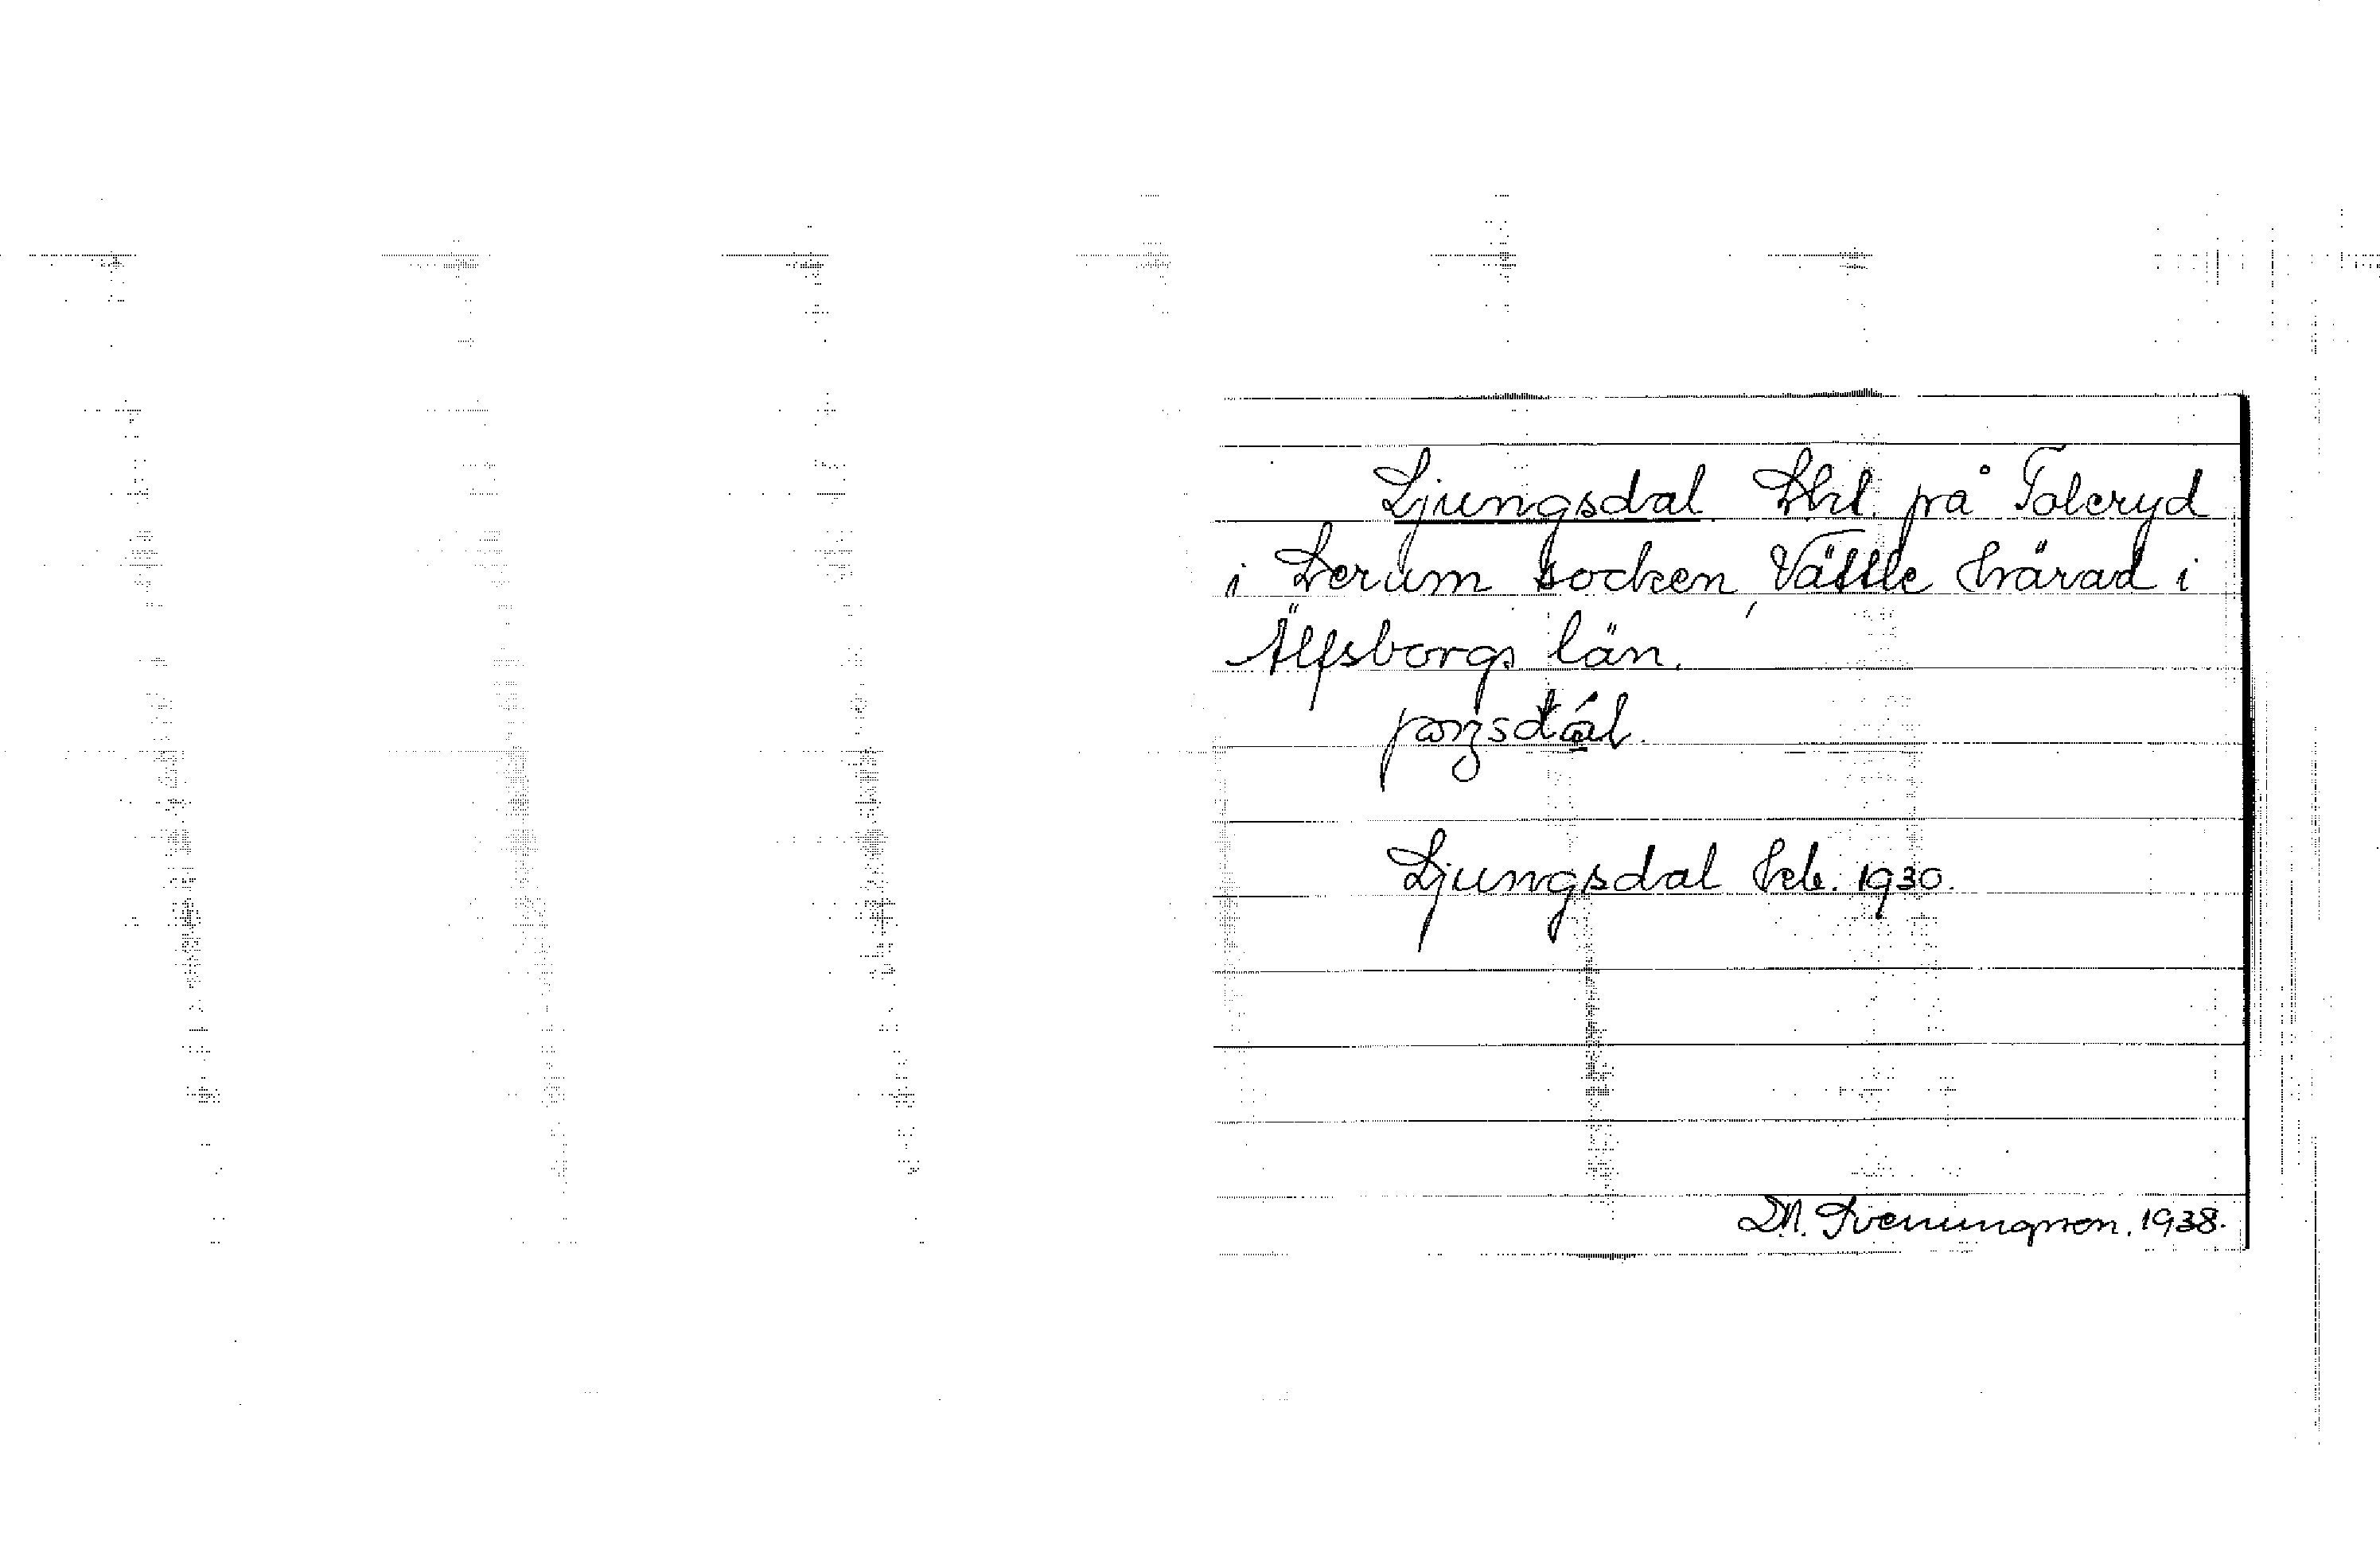 Ljungsdal. Lht. på Toleryd
i Lerum socken, Vättle härad i
Älfsborgs län.
Ljungsdal Ekb. 1930.
D.N. Sveningsson. 1938.